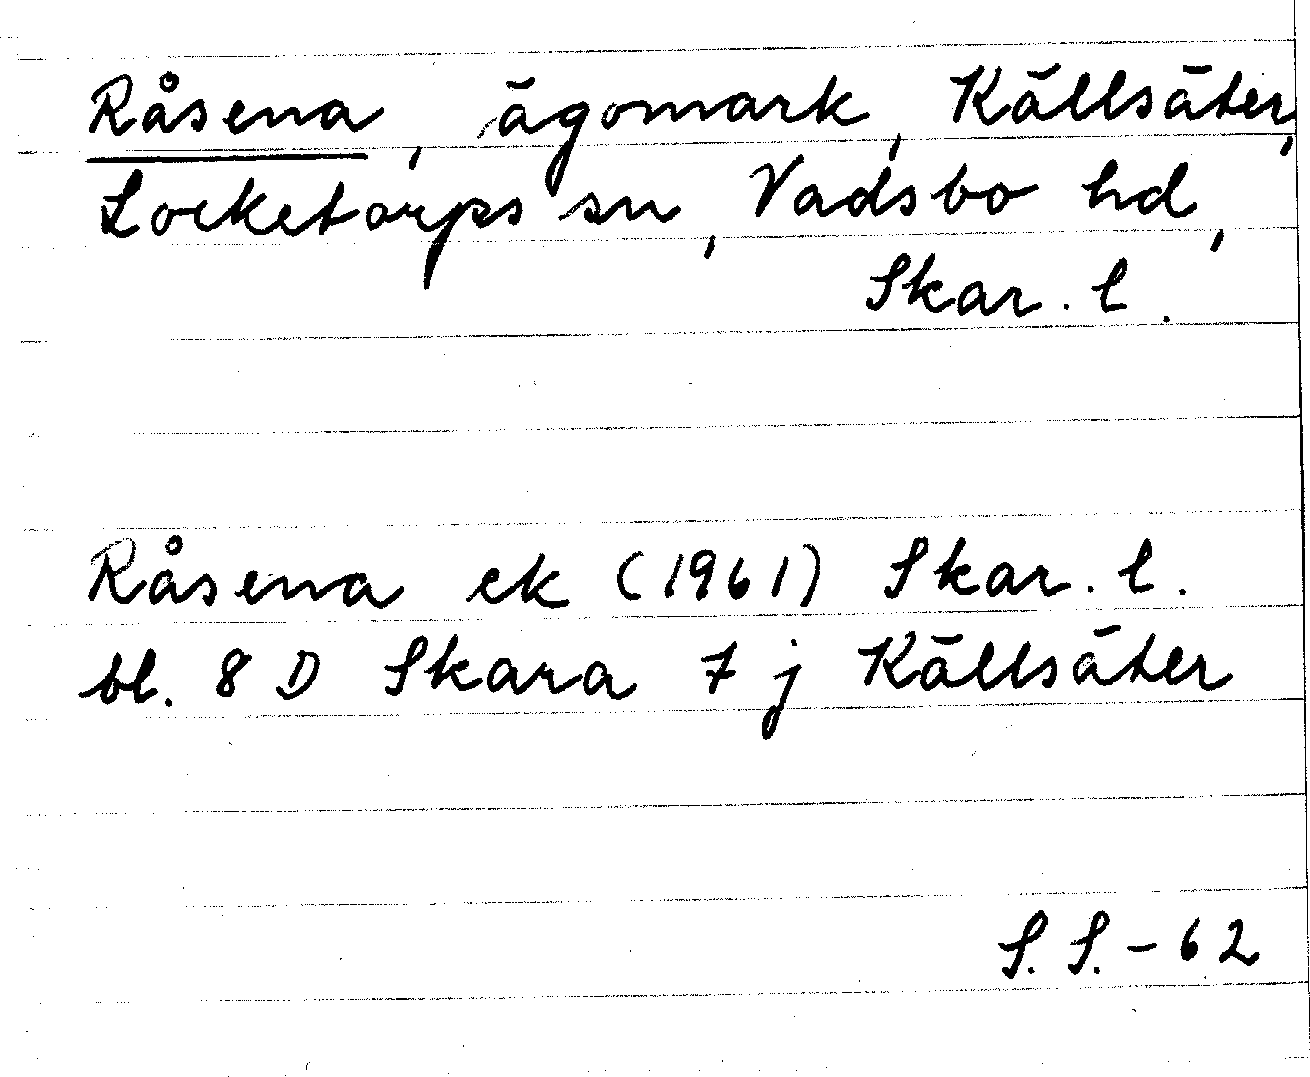 Råsena, ägomark, Källsäter,
Locketorps sn, Vadsbo hd,
Skar. l.
Råsena ek (1961) Skar. l.
bl. 8 D Skara 7 j Källsäter
S. S. - 62